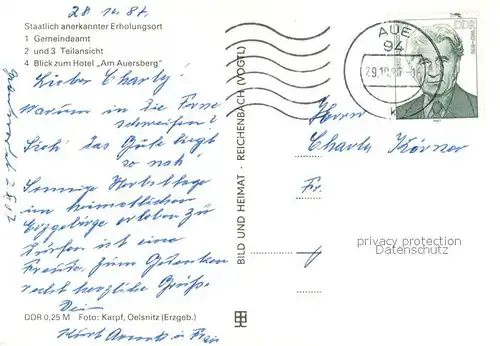 28.10.87.
Staatlich anerkannter Erholungsort
1 Gemeindeamt
2 und 3 Teilansicht
4 Blick zum Hotel „Am Auersberg"
Lieber Charly!
Warum in die Ferne
schweifen?
Sieh' das Gute liegt
so nah!
Sonnige Herbsttage
im heimatlichen
Erzgebirge erleben zu
dürfen ist eine
Freude. Zum Gedenken
recht herzliche Grüße
Dein
Kurt
DDR 0,25 M Foto: Karpf, Oelsnitz (Erzgeb.)
BILD UND HEIMAT · REICHENBACH (VOGTL)
AUE
94
29.10.87
DDR
Herrn
Charly Körner
Fr.
privacy protection
Datenschutz